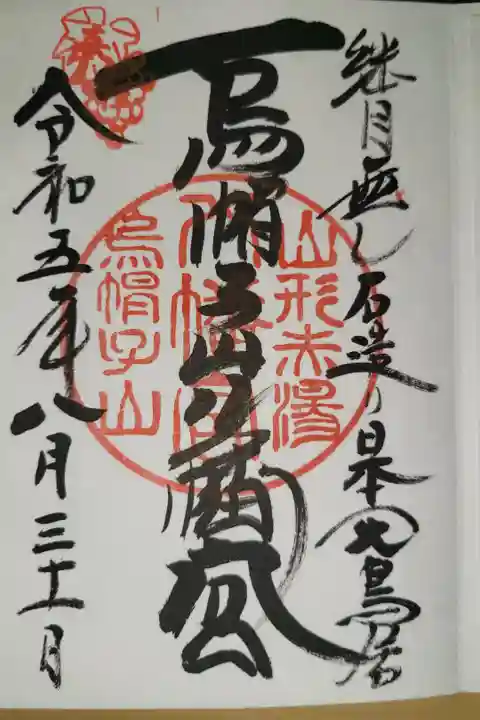 継目無し石造り日本一大鳥居
烏帽子山八幡宮
令和五年八月三十一日
山形赤湯
八幡宮
烏帽子山